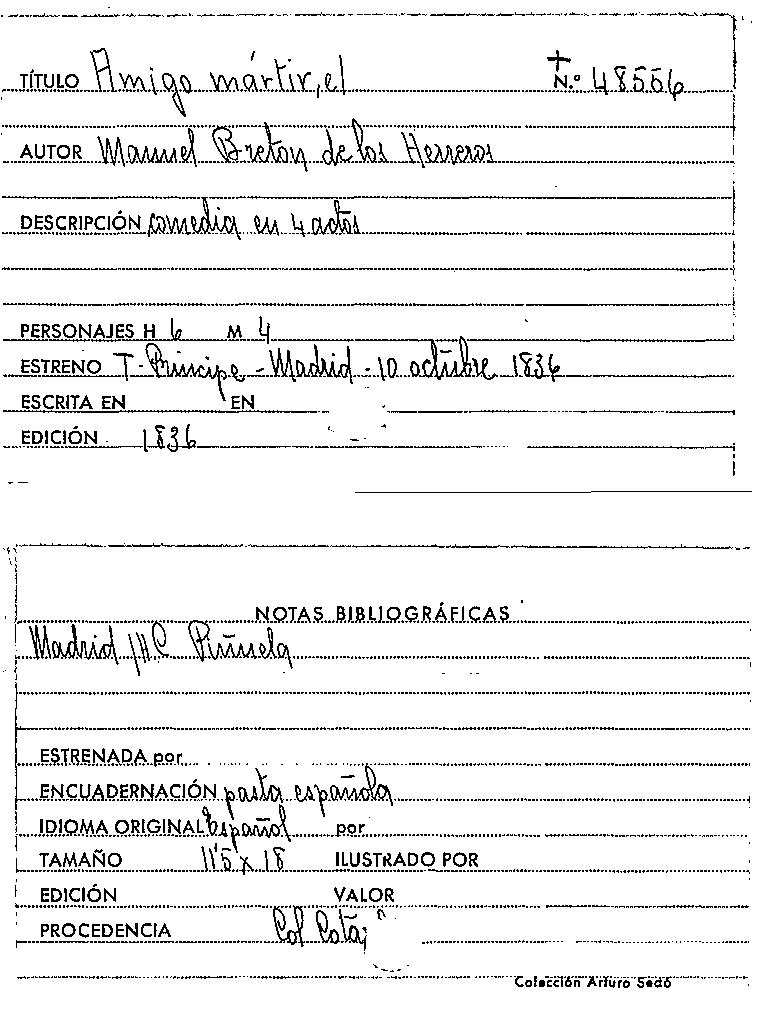 TÍTULO Amigo mártir, el N.º 48556
AUTOR Manuel Breton de los Herreros
DESCRIPCIÓN comedia en 4 actos
PERSONAJES H 6 M 4
ESTRENO T-Principe - Madrid - 10 octubre 1836
ESCRITA EN EN
EDICIÓN 1836
NOTAS BIBLIOGRÁFICAS
Madrid Piñuela
ESTRENADA por
ENCUADERNACIÓN pasta española
IDIOMA ORIGINAL Español por
TAMAÑO 11'5 x 18 ILUSTRADO POR
EDICIÓN VALOR
PROCEDENCIA Col
Colección Arturo Sedó